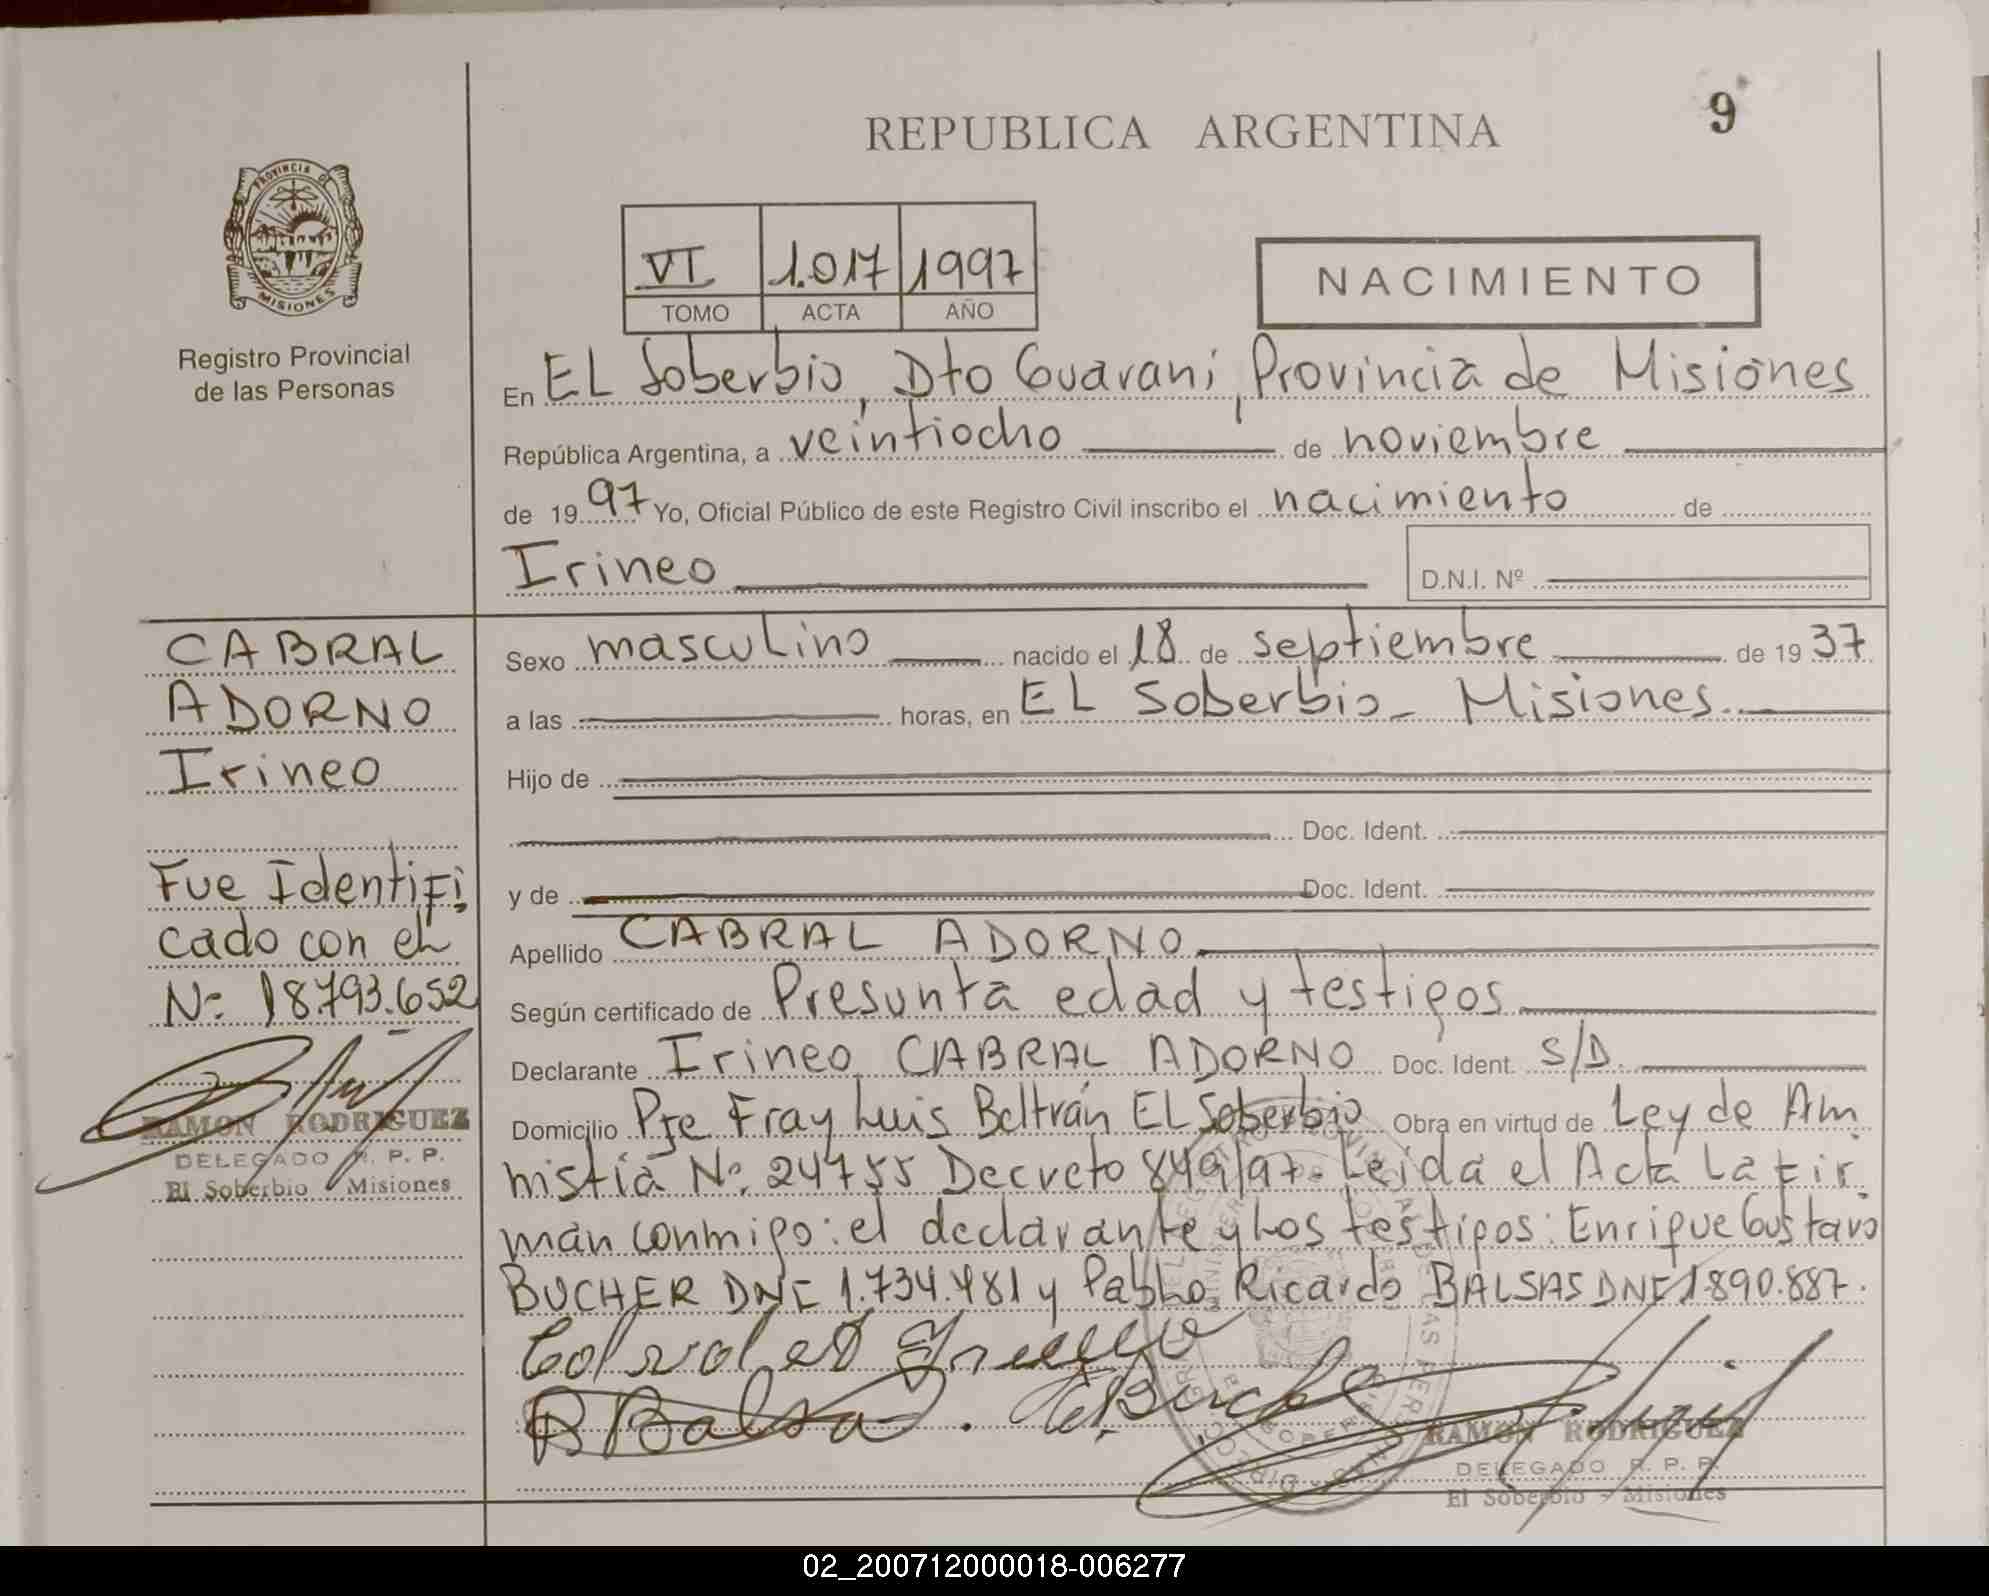 REPUBLICA ARGENTINA
9
PROVINCIA DE
MISIONES
Registro Provincial
de las Personas
VI 1.017 1997
TOMO ACTA AÑO
NACIMIENTO
En EL Soberbio, Dto Guaraní, Provincia de Misiones
República Argentina, a veintiocho de noviembre
de 1997 Yo, Oficial Público de este Registro Civil inscribo el nacimiento de
Irineo
D.N.I. Nº
CABRAL
ADORNO
Irineo
Fue Identifi
cado con el
Nº 18.793.652
RAMON RODRIGUEZ
DELEGADO R. P. P.
El Soberbio Misiones
Sexo masculino nacido el 18 de septiembre de 1937
a las horas, en EL Soberbio - Misiones
Hijo de
Doc. Ident.
y de Doc. Ident.
Apellido CABRAL ADORNO
Según certificado de Presunta edad y testigos
Declarante Irineo CABRAL ADORNO Doc. Ident. S/D.
Domicilio Pje Fray Luis Beltrán EL Soberbio Obra en virtud de Ley de Am
nistía Nº 24755 Decreto 849/97. Leída el Acta La fir
man conmigo: el declarante y Los testigos: Enrique Gustavo
BUCHER DNI 1.734.481 y Pablo Ricardo BALSAS DNI 1.890.887.
RAMON RODRIGUEZ
DELEGADO R. P. P.
El Soberbio - Misiones
02_200712000018-006277